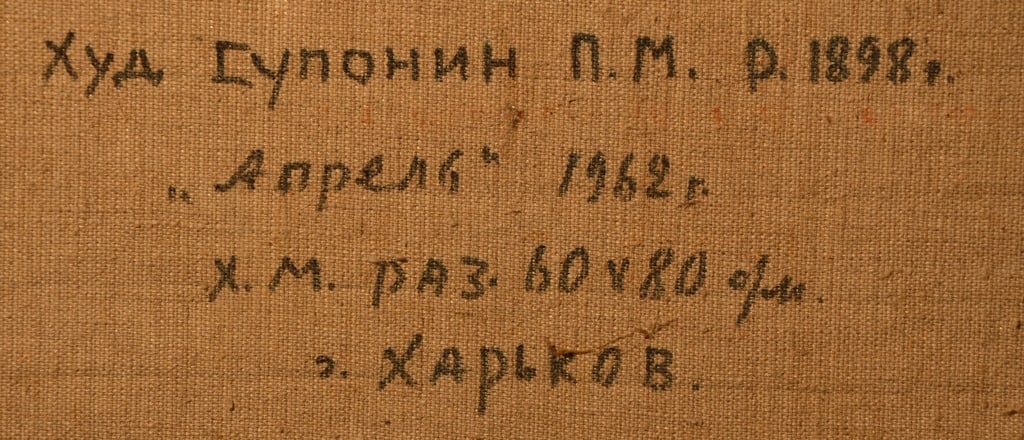 Худ Супонин П.М. р. 1898 г.
„Апрель" 1962 г.
Х.М. раз. 60 x 80 см.
г. Харьков.